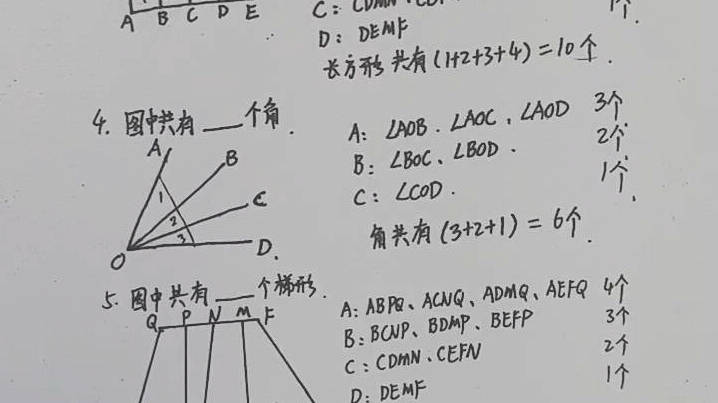 A B C D E
C: CDMN、
1个.
D: DEMF
长方形共有(1+2+3+4)=10个.
4. 图中共有___个角.
A: ∠AOB、∠AOC、∠AOD 3个
B: ∠BOC、∠BOD. 2个
C: ∠COD. 1个.
角共有(3+2+1)=6个.
A
B
C
D.
O
1
2
3
5. 图中共有___个梯形.
Q P N M F
A: ABPQ、ACNQ、ADMQ、AEFQ 4个
B: BCNP、BDMP、BEFP 3个
C: CDMN、CEFN 2个
D: DEMF 1个